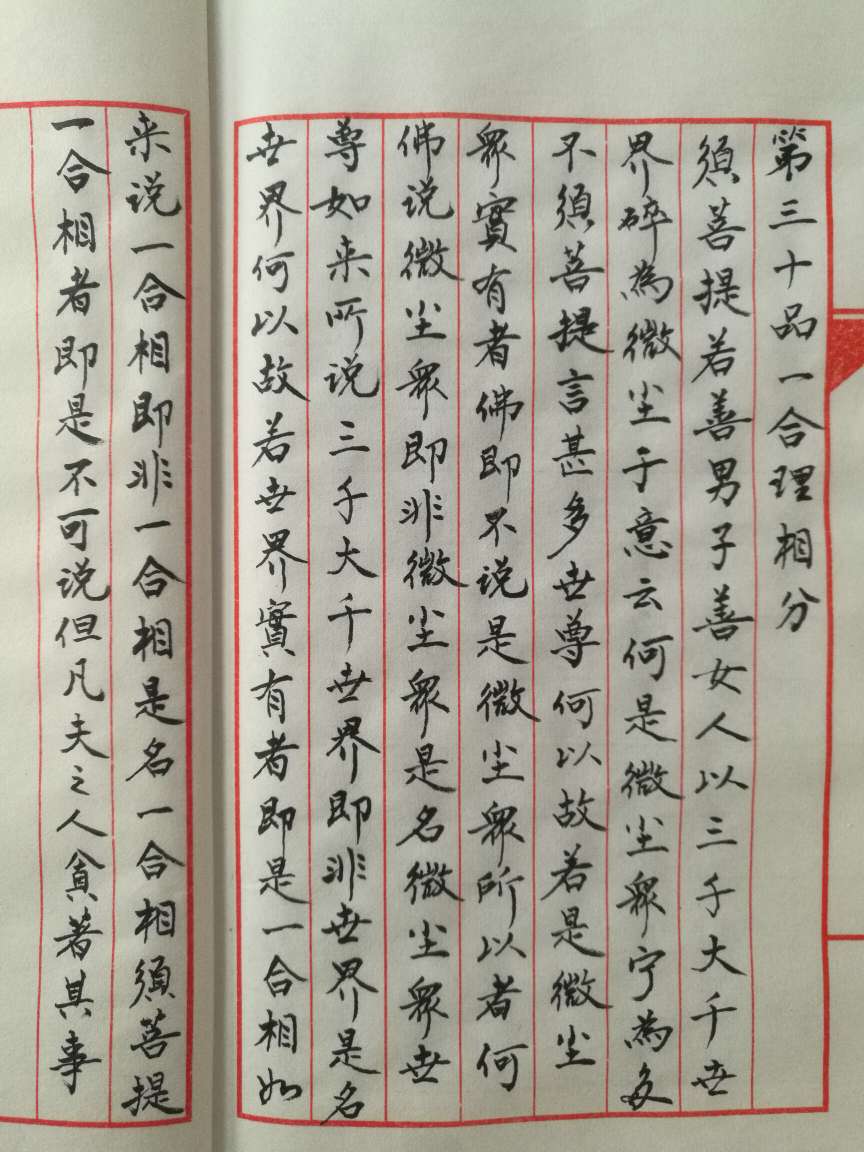 第三十品一合理相分
須菩提若善男子善女人以三千大千世
界碎為微尘于意云何是微尘眾宁為多
不須菩提言甚多世尊何以故若是微尘
眾實有者佛即不说是微尘眾所以者何
佛说微尘眾即非微尘眾是名微尘眾世
尊如来所说三千大千世界即非世界是名
世界何以故若世界實有者即是一合相如
来说一合相即非一合相是名一合相須菩提
一合相者即是不可说但凡夫之人貪著其事